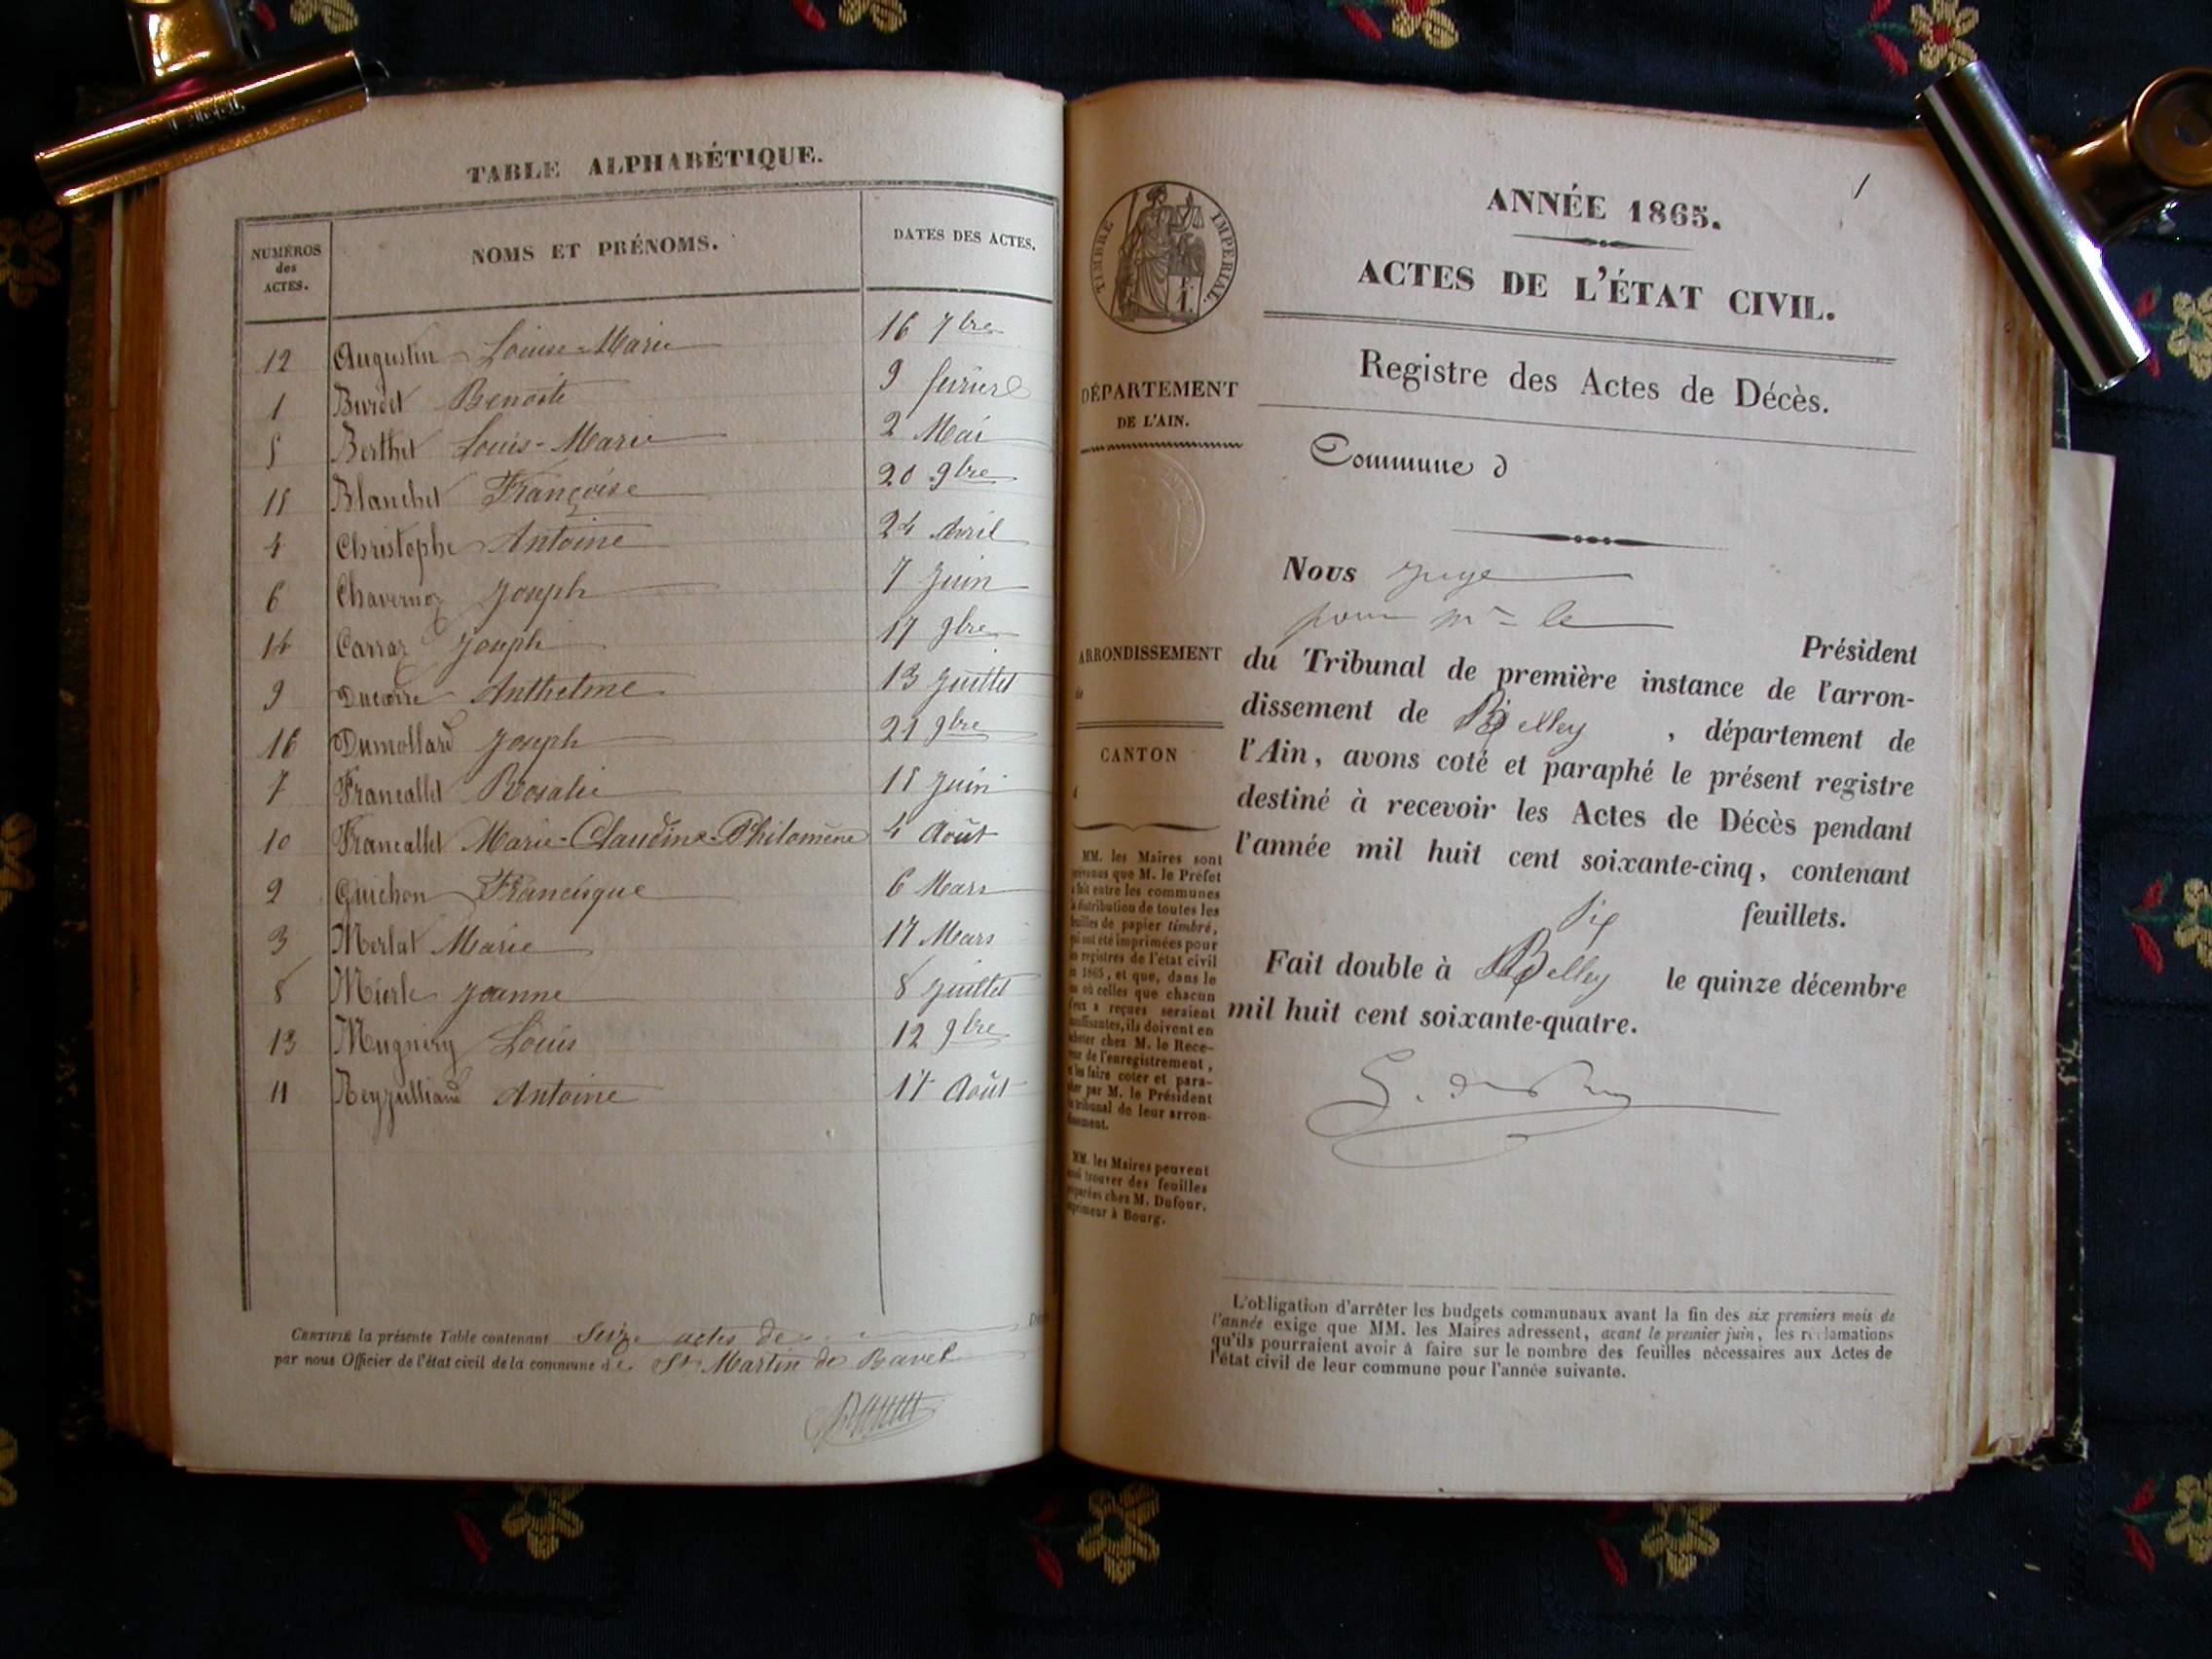 TABLE ALPHABÉTIQUE.
NUMÉROS des ACTES. NOMS ET PRÉNOMS. DATES DES ACTES.
12 Augustin Louise-Marie 16 7bre
1 Burdet Benoite 9 février
5 Berthet Louis-Marie 2 Mai
15 Blanchet Françoise 20 9bre
4 Christophe Antoine 24 Avril
6 Chavernoz Joseph 7 Juin
14 Carraz Joseph 17 9bre
9 Ducarre Anthelme 13 Juillet
16 Dumollard Joseph 21 9bre
7 Francallet Rosalie 15 Juin
10 Francallet Marie-Claudine-Philomène 4 Août
2 Guichon Francisque 6 Mars
3 Merlat Marie 17 Mars
8 Mierle Jeanne 8 Juillet
13 Mugniry Louis 12 9bre
11 Antoine 17 Août
CERTIFIÉ la présente Table contenant Seize actes de
par nous Officier de l'état civil de la commune de St Martin de Bavel
1
ANNÉE 1865.
TIMBRE IMPÉRIAL.
ACTES DE L'ÉTAT CIVIL.
Registre des Actes de Décès.
DÉPARTEMENT
DE L'AIN.
Commune d
Nous Juge
pour Mr le
Président
ARRONDISSEMENT
du Tribunal de première instance de l'arron-
dissement de Belley, département de
l'Ain, avons coté et paraphé le présent registre
destiné à recevoir les Actes de Décès pendant
l'année mil huit cent soixante-cinq, contenant
Six feuillets.
Fait double à Belley le quinze décembre
mil huit cent soixante-quatre.
CANTON
MM. les Maires sont
que M. le Préfet
fait entre les communes
distribution de toutes les
feuilles de papier timbré,
qui ont été imprimées pour
registres de l'état civil
1865, et que, dans le
où celles que chacun
d'eux a reçues seraient
insuffisantes, ils doivent en
acheter chez M. le Rece-
veur de l'enregistrement,
les faire coter et para-
pher par M. le Président
tribunal de leur arron-
dissement.
MM. les Maires peuvent
trouver des feuilles
préparées chez M. Dufour,
imprimeur à Bourg.
L'obligation d'arrêter les budgets communaux avant la fin des six premiers mois de
l'année exige que MM. les Maires adressent, avant le premier juin, les réclamations
qu'ils pourraient avoir à faire sur le nombre des feuilles nécessaires aux Actes de
l'état civil de leur commune pour l'année suivante.